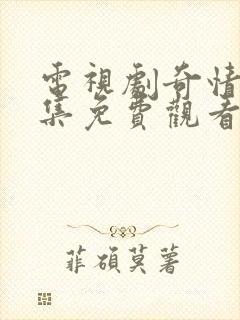 電視劇奇情
集免費觀看
菲碩莫著